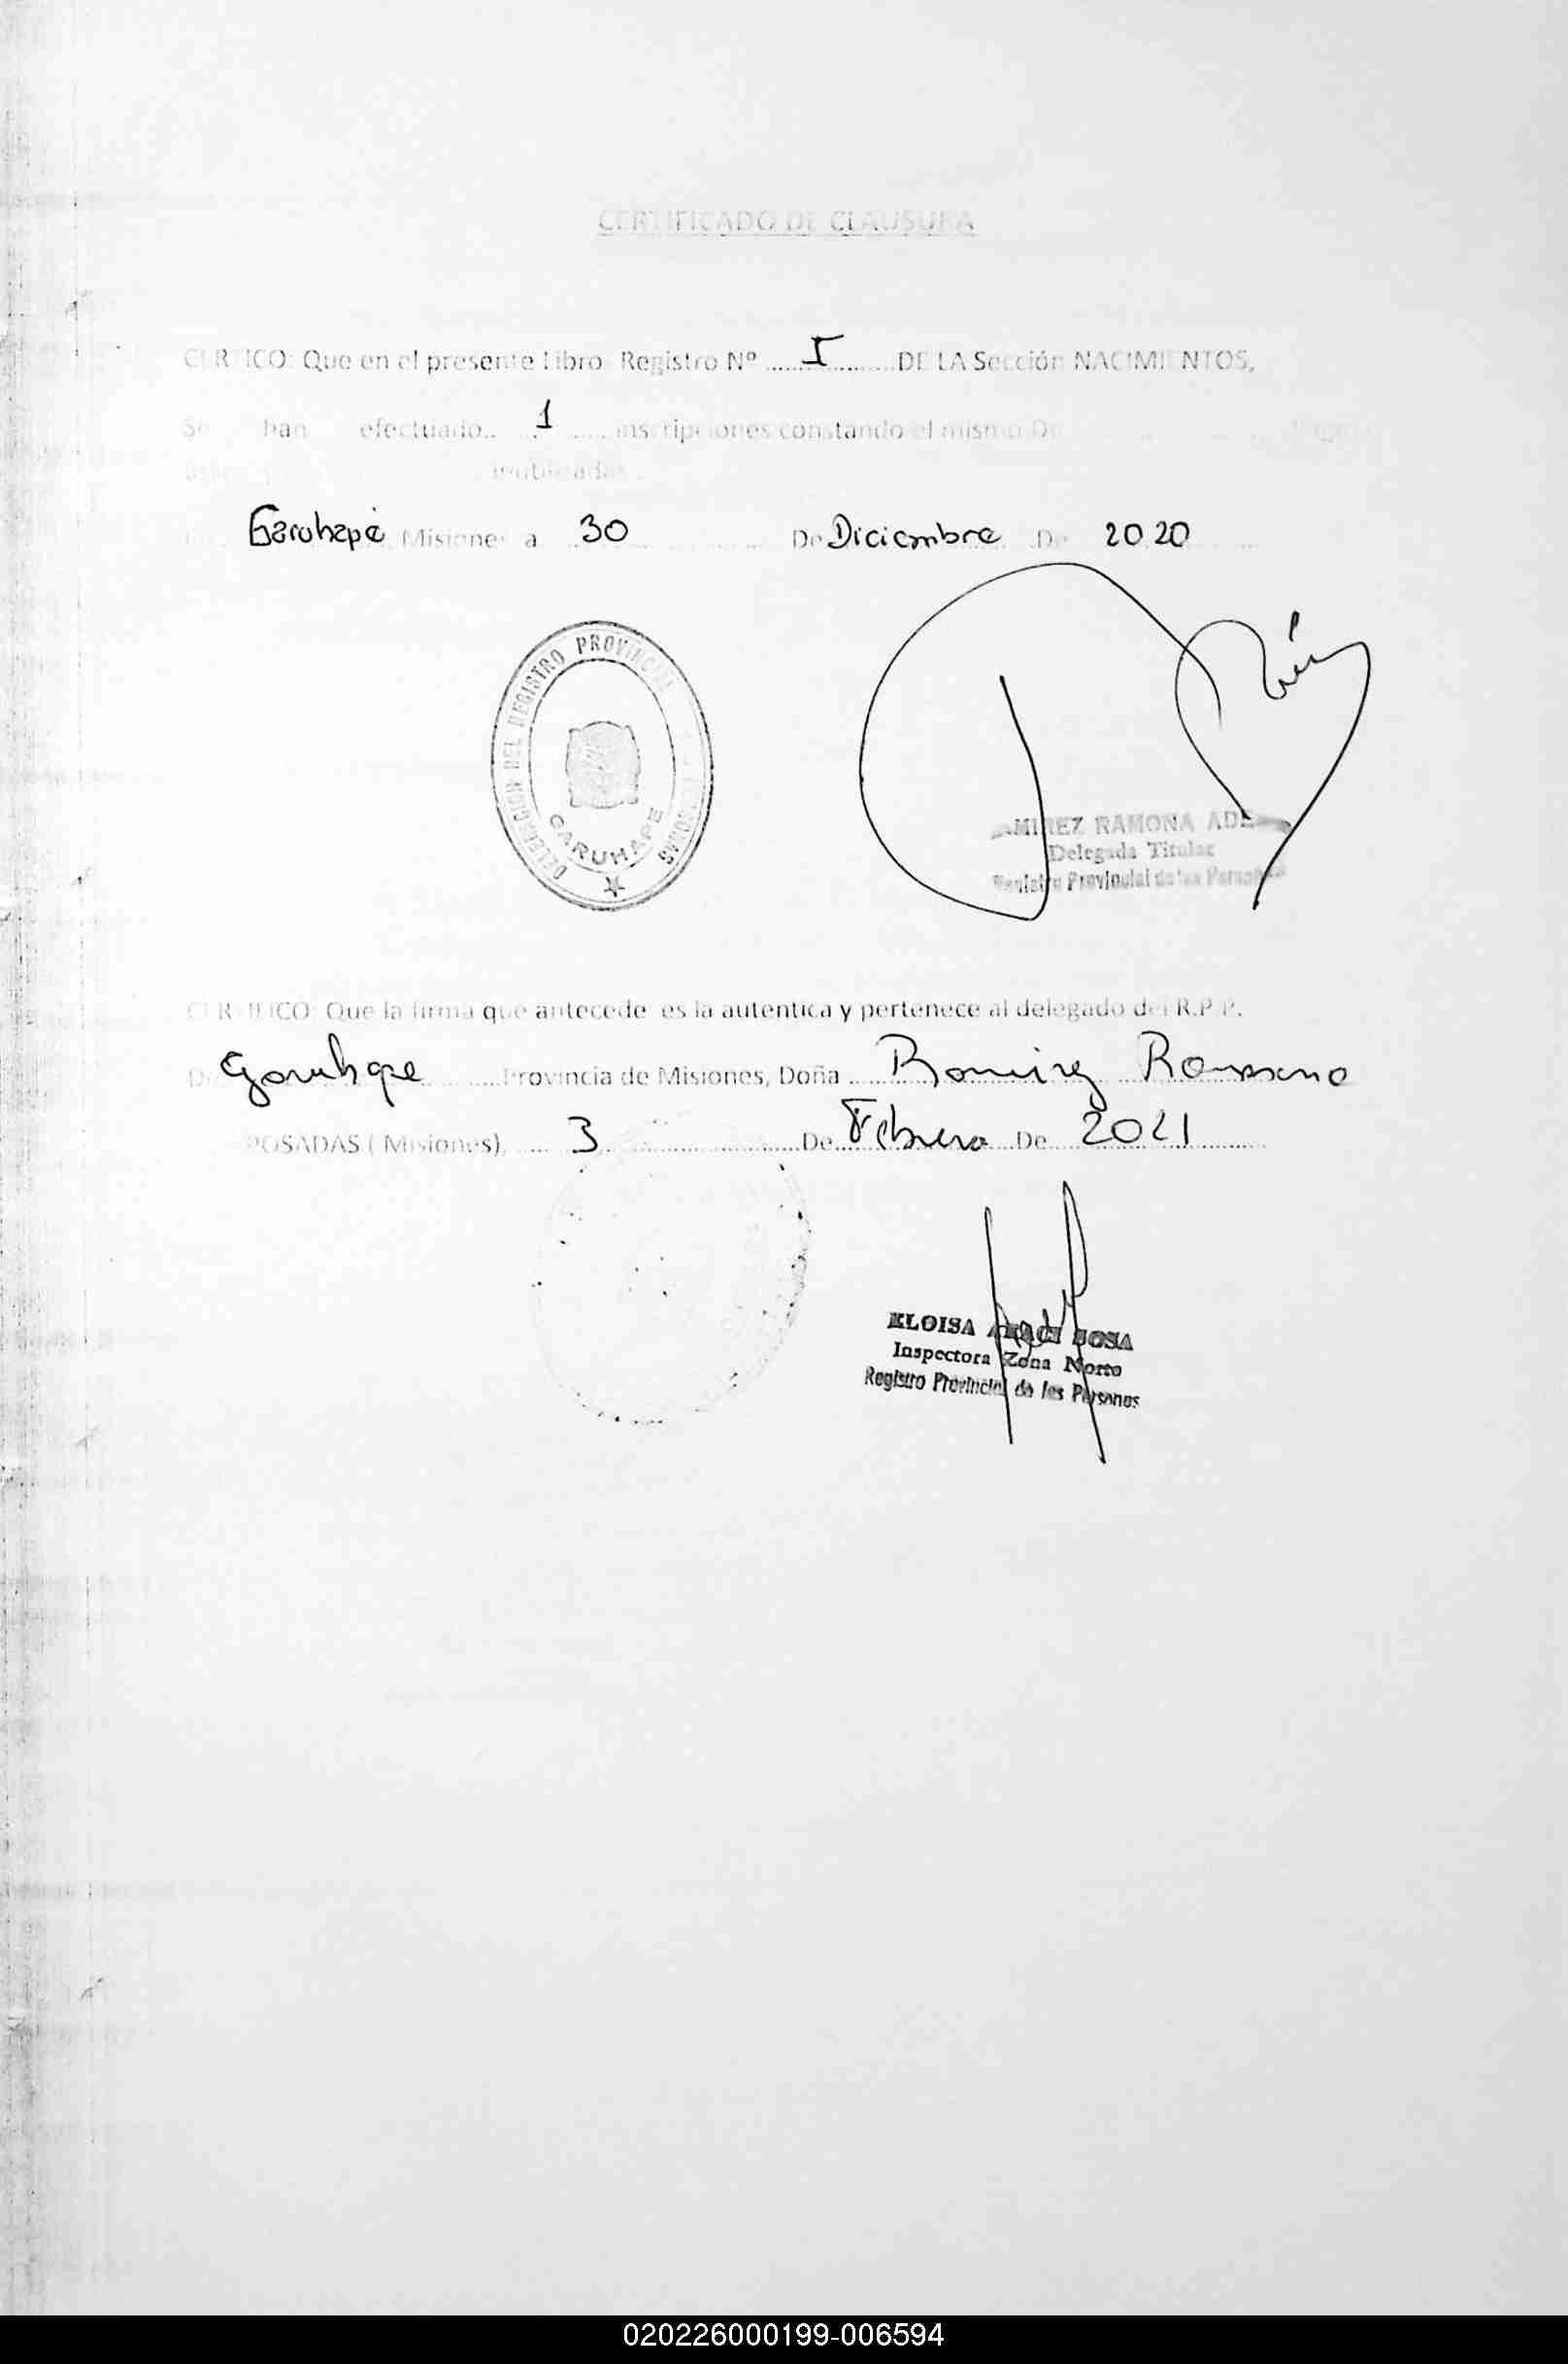 CERTIFICADO DE CLAUSURA
CERTIFICO: Que en el presente Libro Registro Nº ......I......... DE LA Sección NACIMIENTOS,
Se han efectuado.. 1 ..... inscripciones constando el mismo De
inutilizadas
Garuhapé Misiones a 30 De Diciembre De 2020
DELEGACION DEL REGISTRO PROVINCIAL PERSONAS
GARUHAPE
RAMIREZ RAMONA
Delegada Titular
Registro Provincial de las Personas
CERTIFICO: Que la firma que antecede es la autentica y pertenece al delegado del R.P.P.
De Garuhape Provincia de Misiones, Doña Ramirez Ramona
POSADAS ( Misiones), 3 De Febrero De 2021
ELOISA SOSA
Inspectora Zona Norte
Registro Provincial de las Personas
020226000199-006594